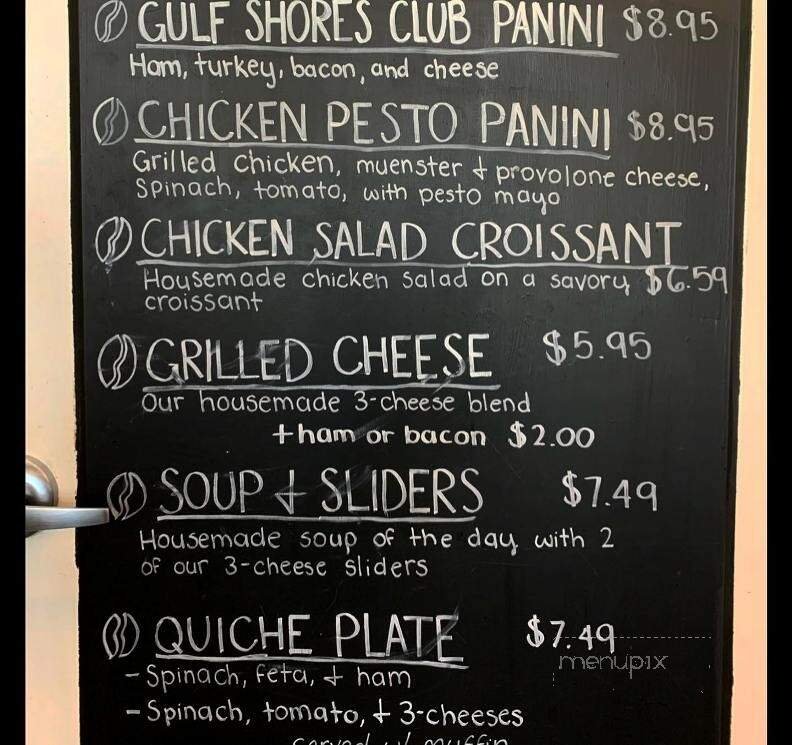 GULF SHORES CLUB PANINI $8.95
Ham, turkey, bacon, and cheese
CHICKEN PESTO PANINI $8.95
Grilled chicken, muenster + provolone cheese,
Spinach, tomato, with pesto mayo
CHICKEN SALAD CROISSANT
Housemade chicken salad on a savory $6.59
croissant
GRILLED CHEESE $5.95
Our housemade 3-cheese blend
+ham or bacon $2.00
SOUP + SLIDERS $7.49
Housemade soup of the day with 2
of our 3-cheese sliders
QUICHE PLATE $7.49
menupix
- Spinach, feta, + ham
- Spinach, tomato, + 3-cheeses
served w/ muffin